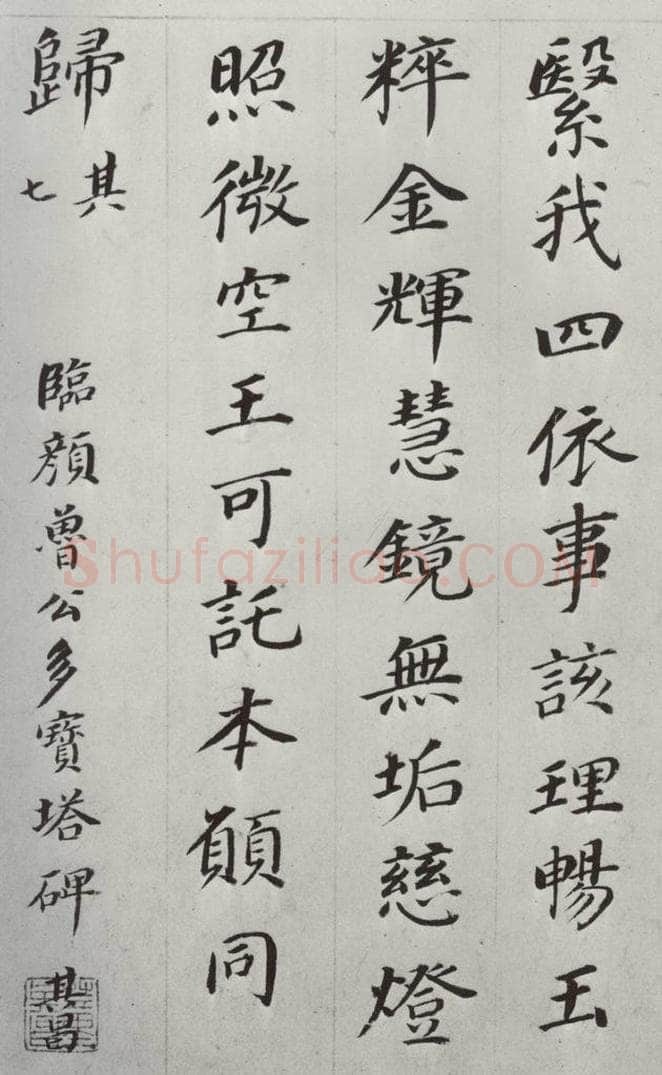 繄我四依事該理暢玉
粹金輝慧鏡無垢慈燈
照微空王可託本願同
歸其七
臨顏魯公多寶塔碑 其昌
Shufaziliao.COM